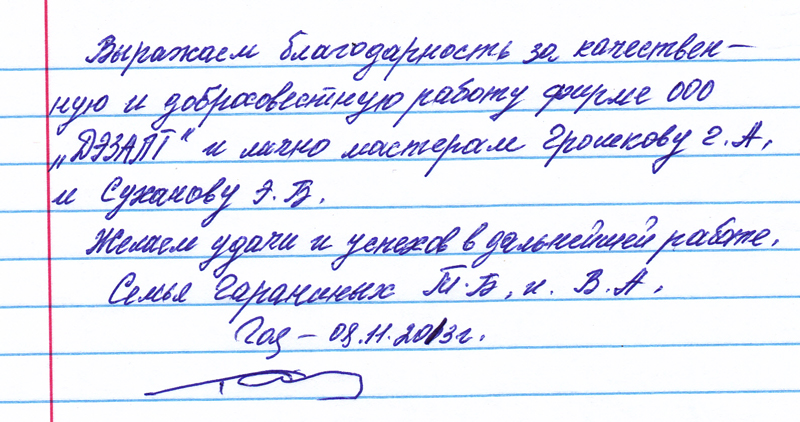 Выражаем благодарность за качествен-
ную и добросовестную работу фирме ООО
„ДЭЗАЛТ" и лично мастерам Громкову Г. А.
и Суханову Э. В.
Желаем удачи и успехов в дальнейшей работе.
Семья Гараниных Т. Б. и В. А.
Год – 09.11.2013г.